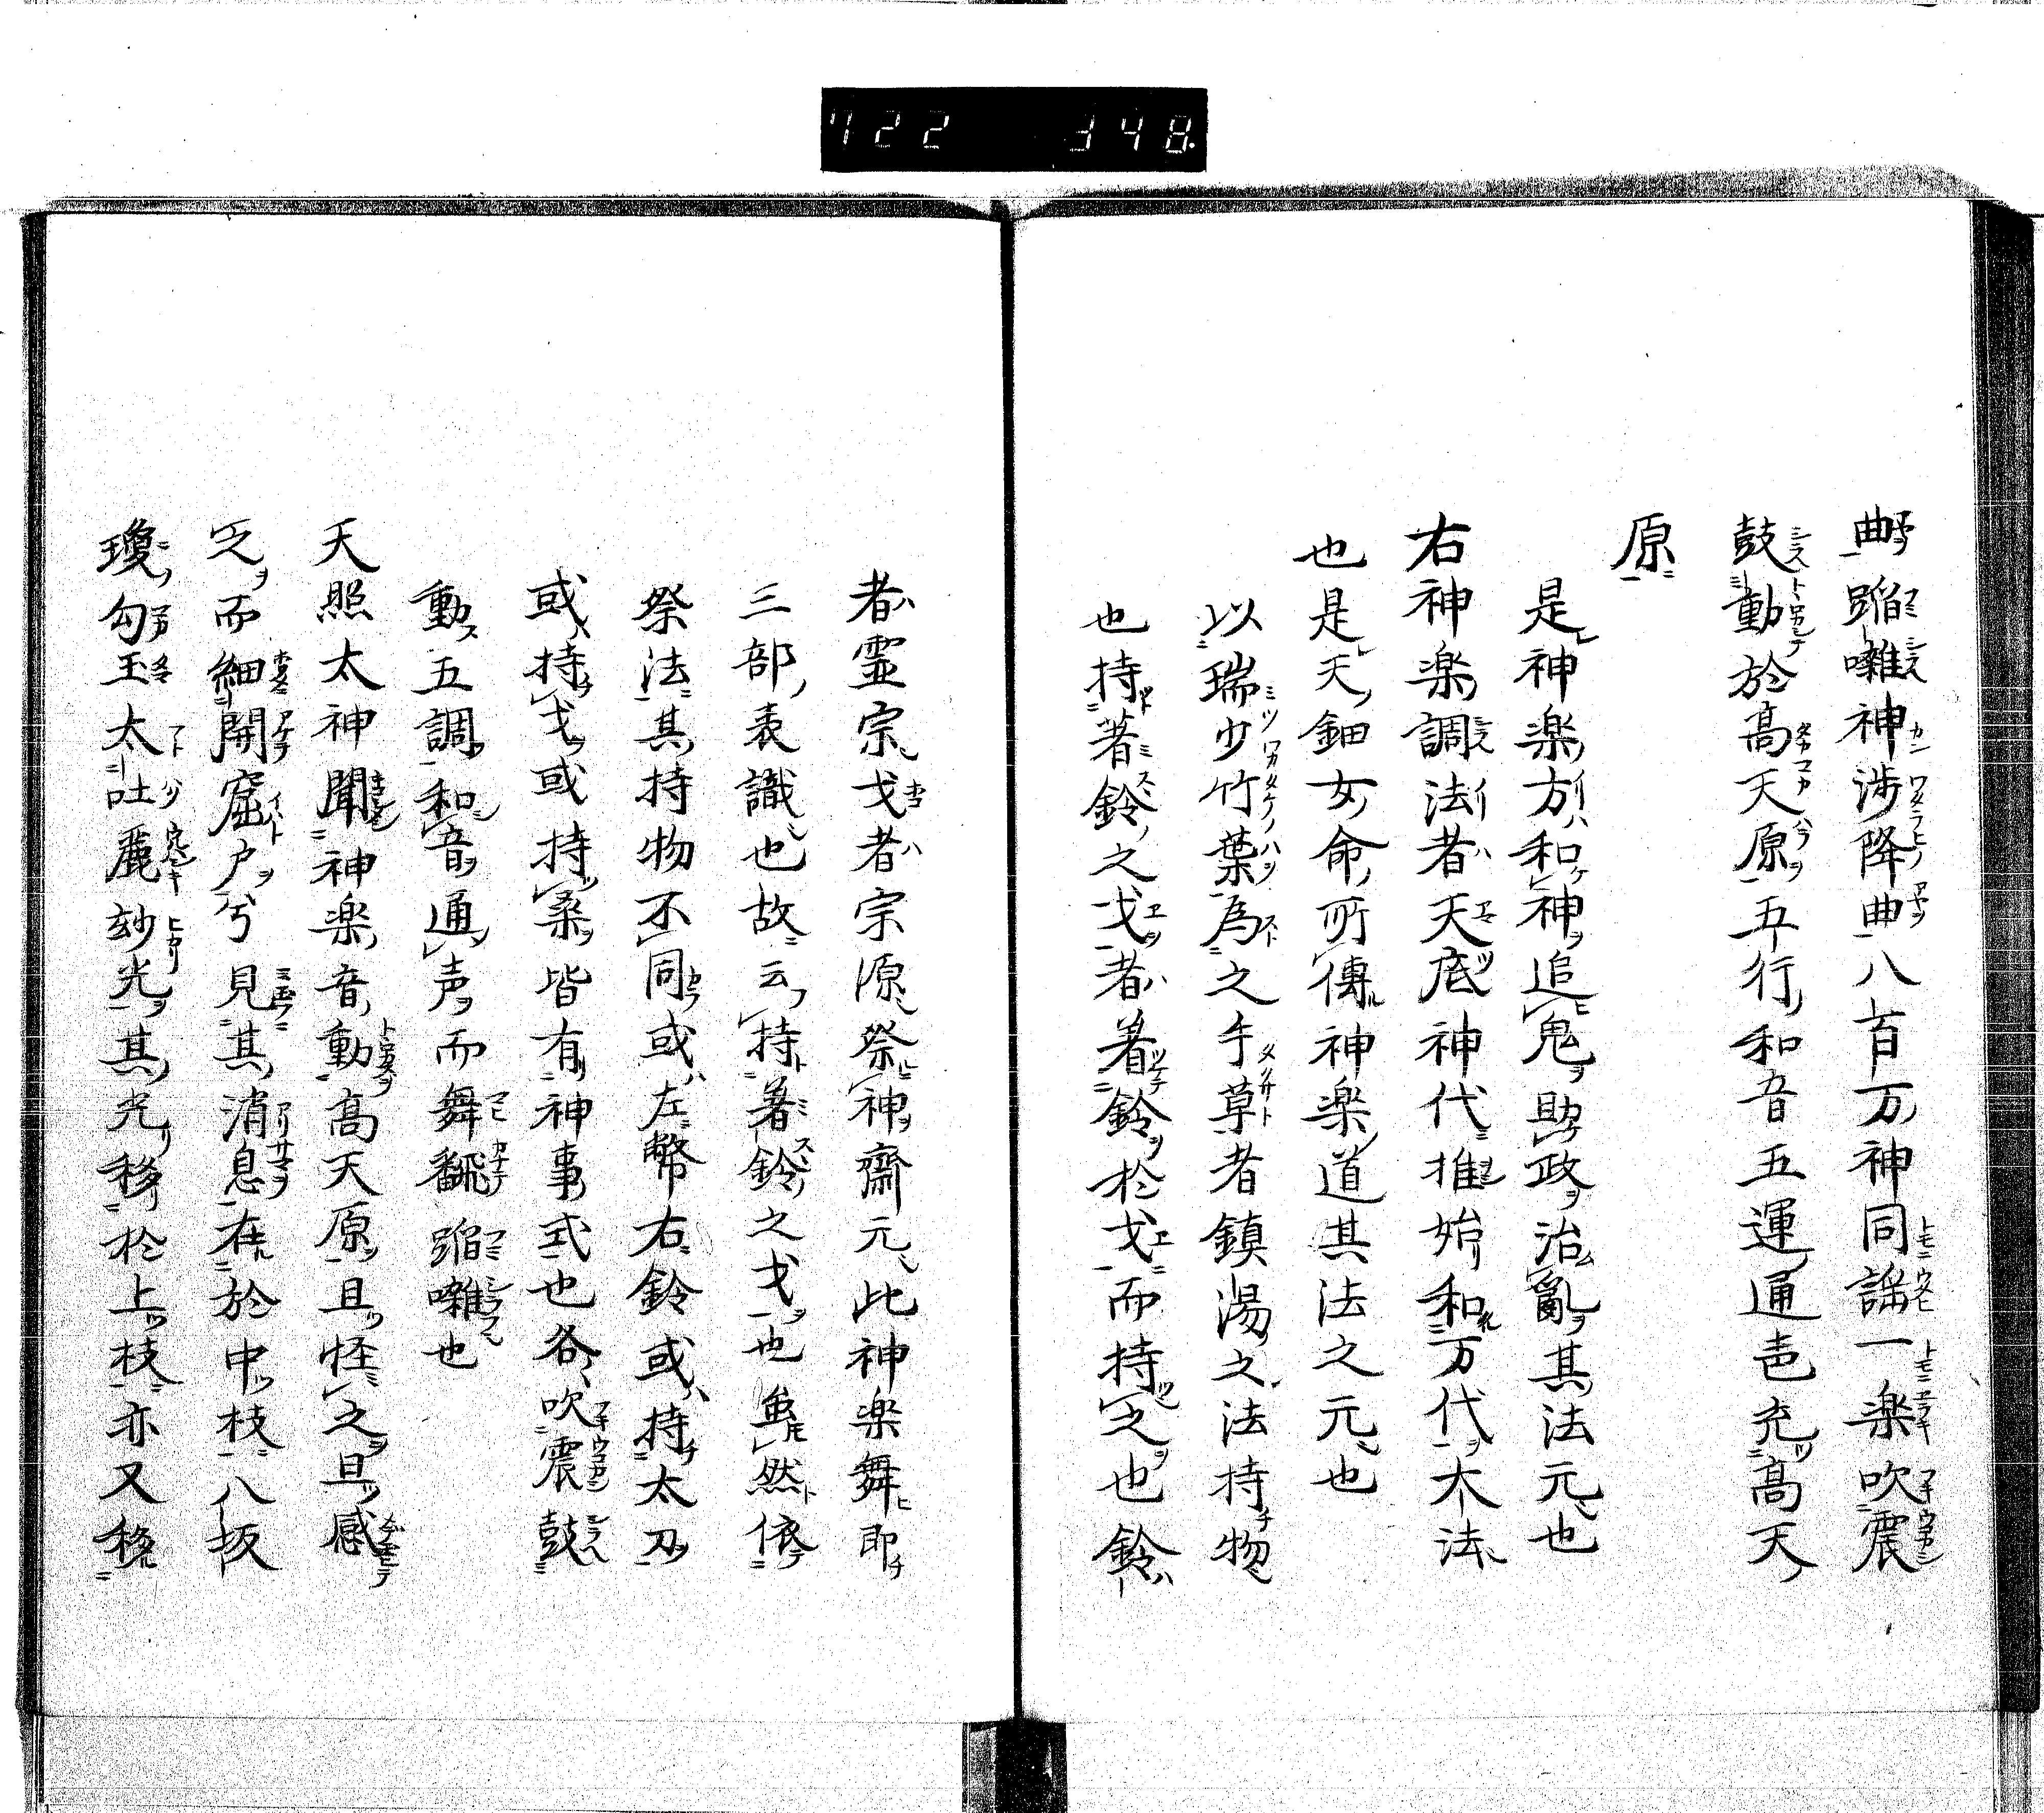 722 348
曲蹈囃神渉降曲八百万神同謡一楽吹震
鼓動於高天原五行和音五運通声充高天
原
是神楽方和神追鬼助政治亂其法元也
右神楽調法者天底神代推始和万代大法
也是天鈿女命所傳神楽道其法之元也
以瑞少竹葉為之手草者鎮湯之法持物
也持著鈴之戈者著鈴於戈而持之也鈴
者霊宗戈者宗源祭神齋元此神楽舞即
三部表識也故云持著鈴之戈也虽然依
祭法其持物不同或左幣右鈴或持太刀
或持戈或持桑皆有神事式也各吹震鼓
動五調和音通声而舞翻蹈囃也
天照太神聞神楽音動高天原且怪之且感
之而細開窟戸兮見其消息在於中枝八坂
瓊勾玉太吐麗玅光其光移於上枝亦又移